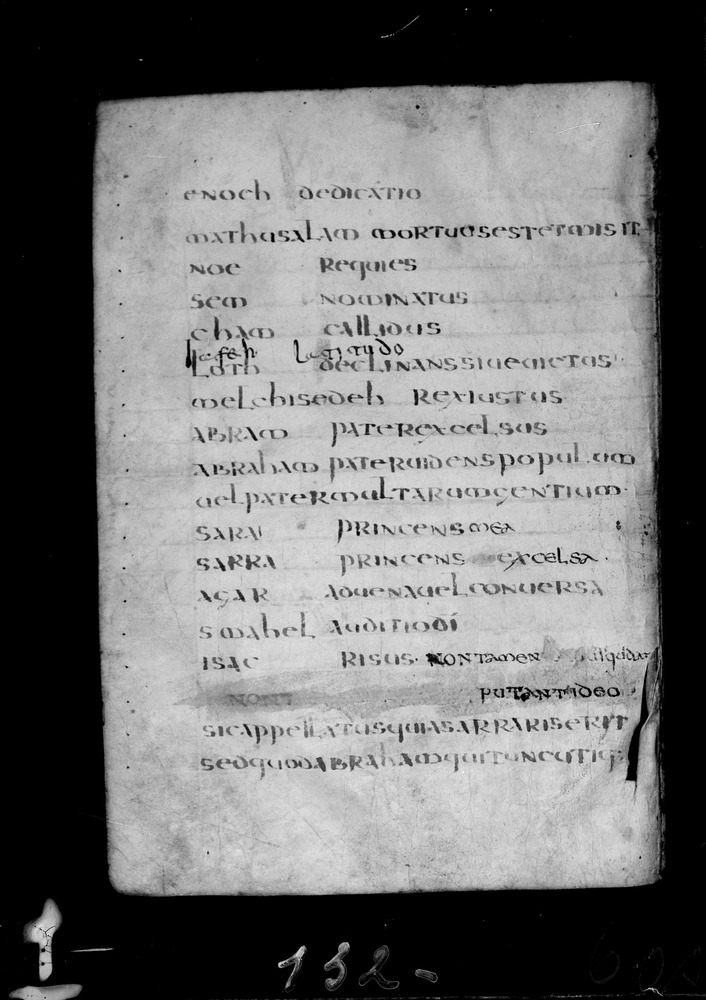 enoch dedicatio
mathusalam mortuus est et misit
noe requies
sem nominatus
cham callidus
Iafeth Latitudo
Loth declinans sive vinctus
melchisedeh rex iustus
abram pater excelsus
abraham pater videns populum
vel pater multarum gentium
sarai princens mea
sarra princens excelsa
agar advena vel conversa
smahel auditio dí
isac risus. non tamen
putant ideo
sic appellatus quia sarra riserit
sed quod abraham qui tunc
132-